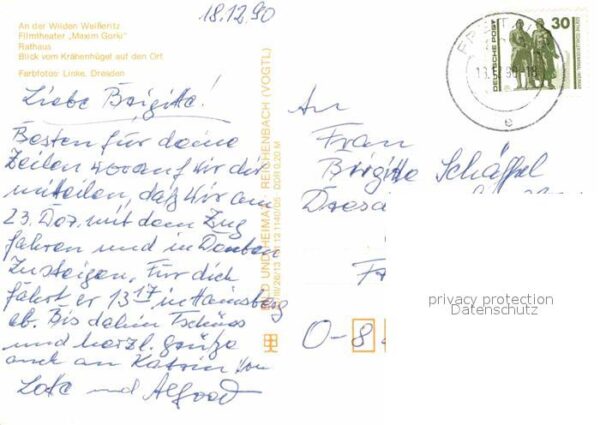 18.12.90
An der Wilden Weißeritz
Filmtheater „Maxim Gorki"
Rathaus
Blick vom Krähenhügel auf den Ort
Farbfotos: Linke, Dresden
Liebe Brigitte!
Besten für deine
Zeilen worauf wir dir
mitteilen, daß wir am
23. Dez. mit dem Zug
fahren und in Deuben
Zusteigen. Für dich
fährt er 13 17 in Hainsberg
ab. Bis dahin Tschüss
und herzl. Grüße
auch an Katrin von
und
BILD UND HEIMAT REICHENBACH (VOGTL)
DDR 0,20 M
DEUTSCHE POST
30
An
Frau
Brigitte Schäffel
O-8
privacy protection
Datenschutz